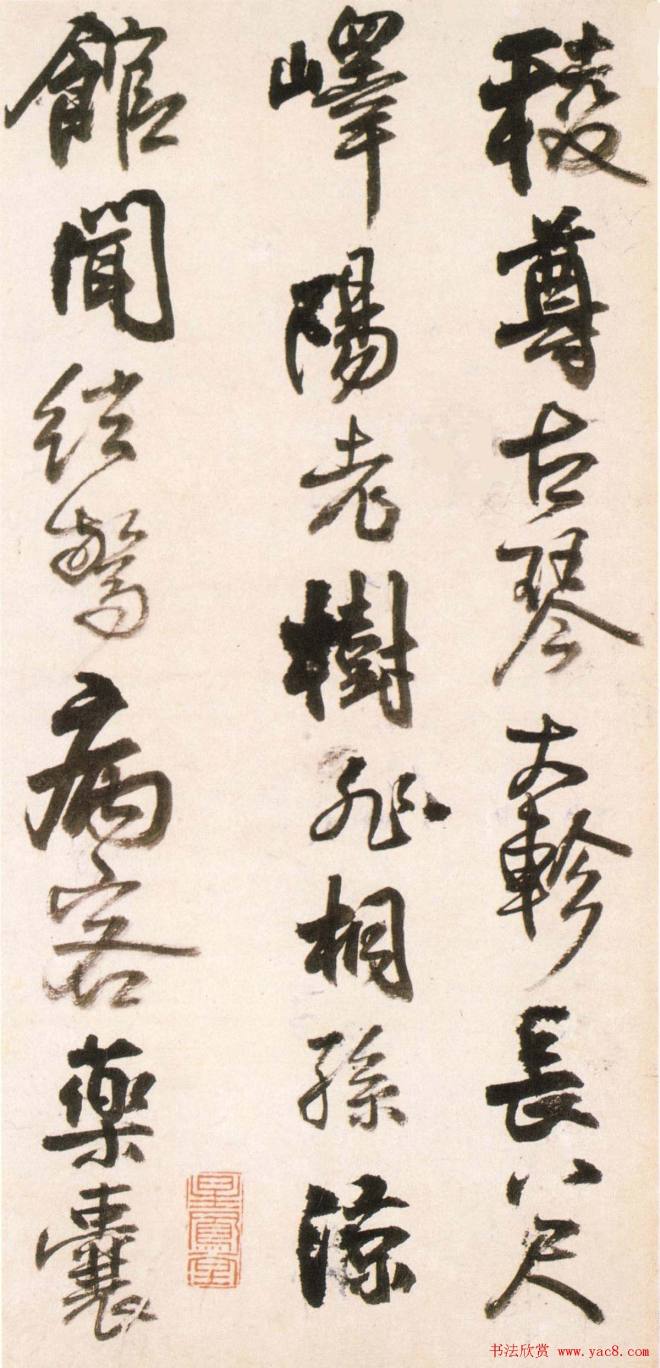 稜尊古琴大軫長八尺
嶧陽老樹非桐孫涼
館聞絃驚病客藥囊
书法欣赏 www.yac8.com